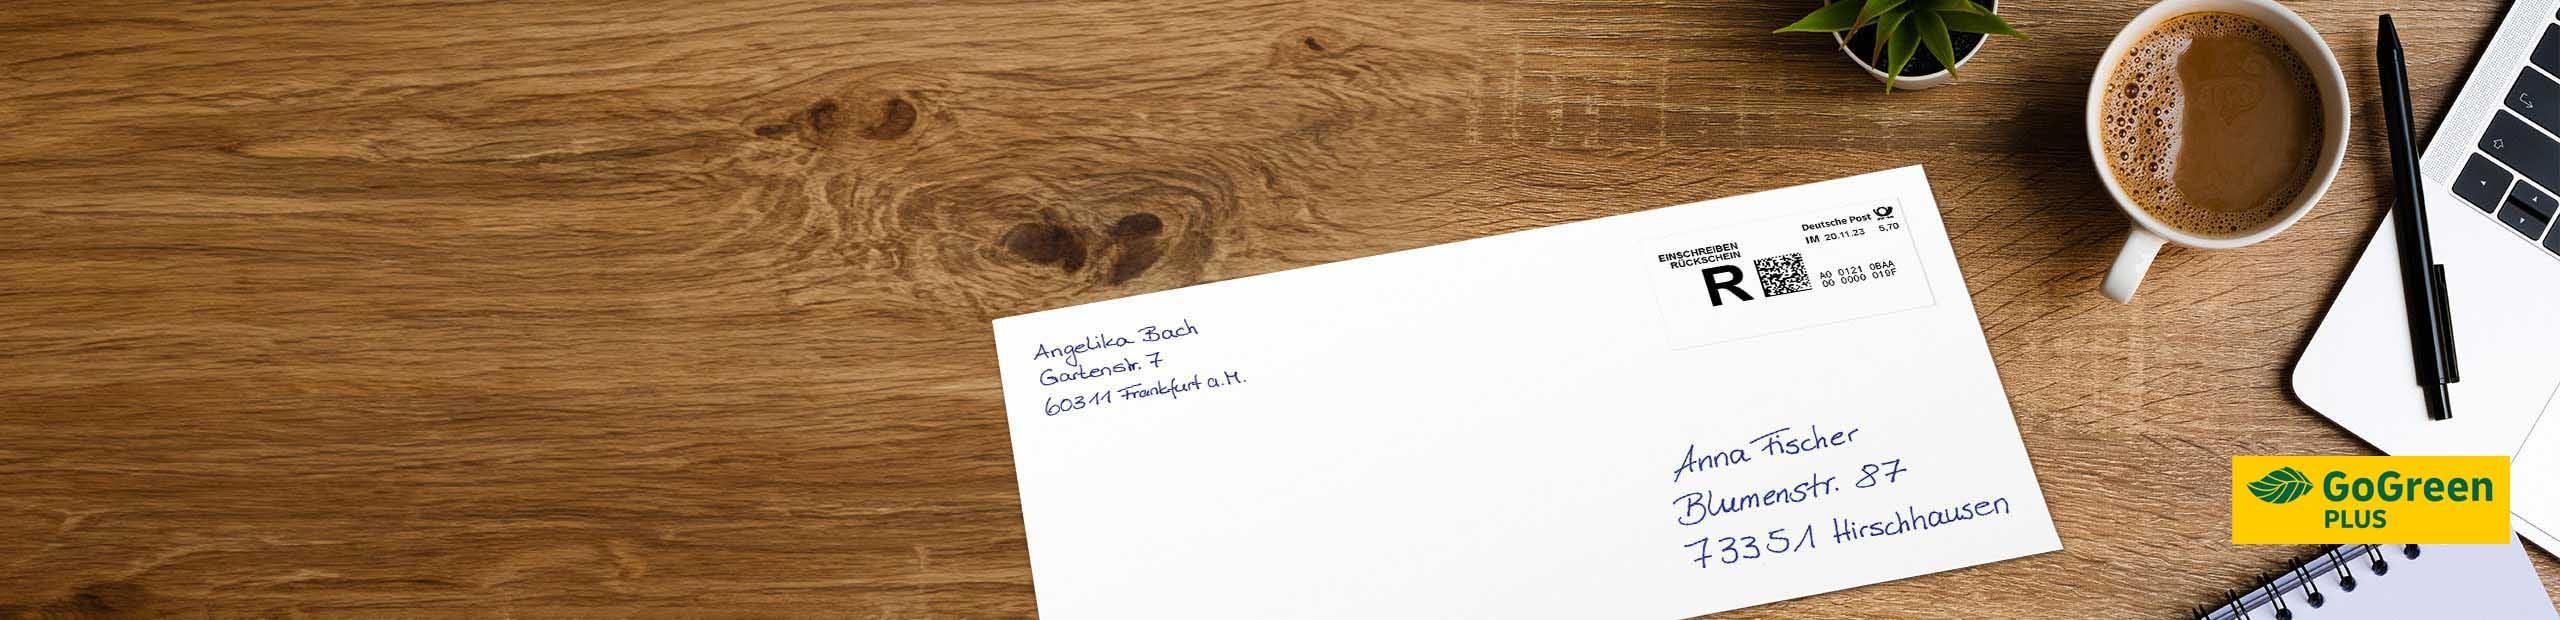 Angelika Bach
Gartenstr. 7
60311 Frankfurt a.M.
Deutsche Post
IM 20.11.23 5,70
EINSCHREIBEN
RÜCKSCHEIN
R
A0 0121 0BAA
00 0000 019F
Anna Fischer
Blumenstr. 87
73351 Hirschhausen
GoGreen
PLUS